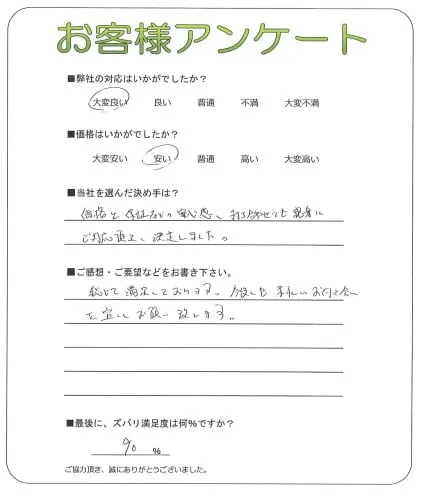 お客様アンケート
■弊社の対応はいかがでしたか？
大変良い 良い 普通 不満 大変不満
■価格はいかがでしたか？
大変安い 安い 普通 高い 大変高い
■当社を選んだ決め手は？
価格と保証などの安心感、打ち合わせでも親身に
ご対応頂き、決定しました。
■ご感想・ご要望などをお書き下さい。
総じて満足しております。 末永いお付き合い
を宜しくお願い致します。
■最後に、ズバリ満足度は何％ですか？
90 %
ご協力頂き、誠にありがとうございました。